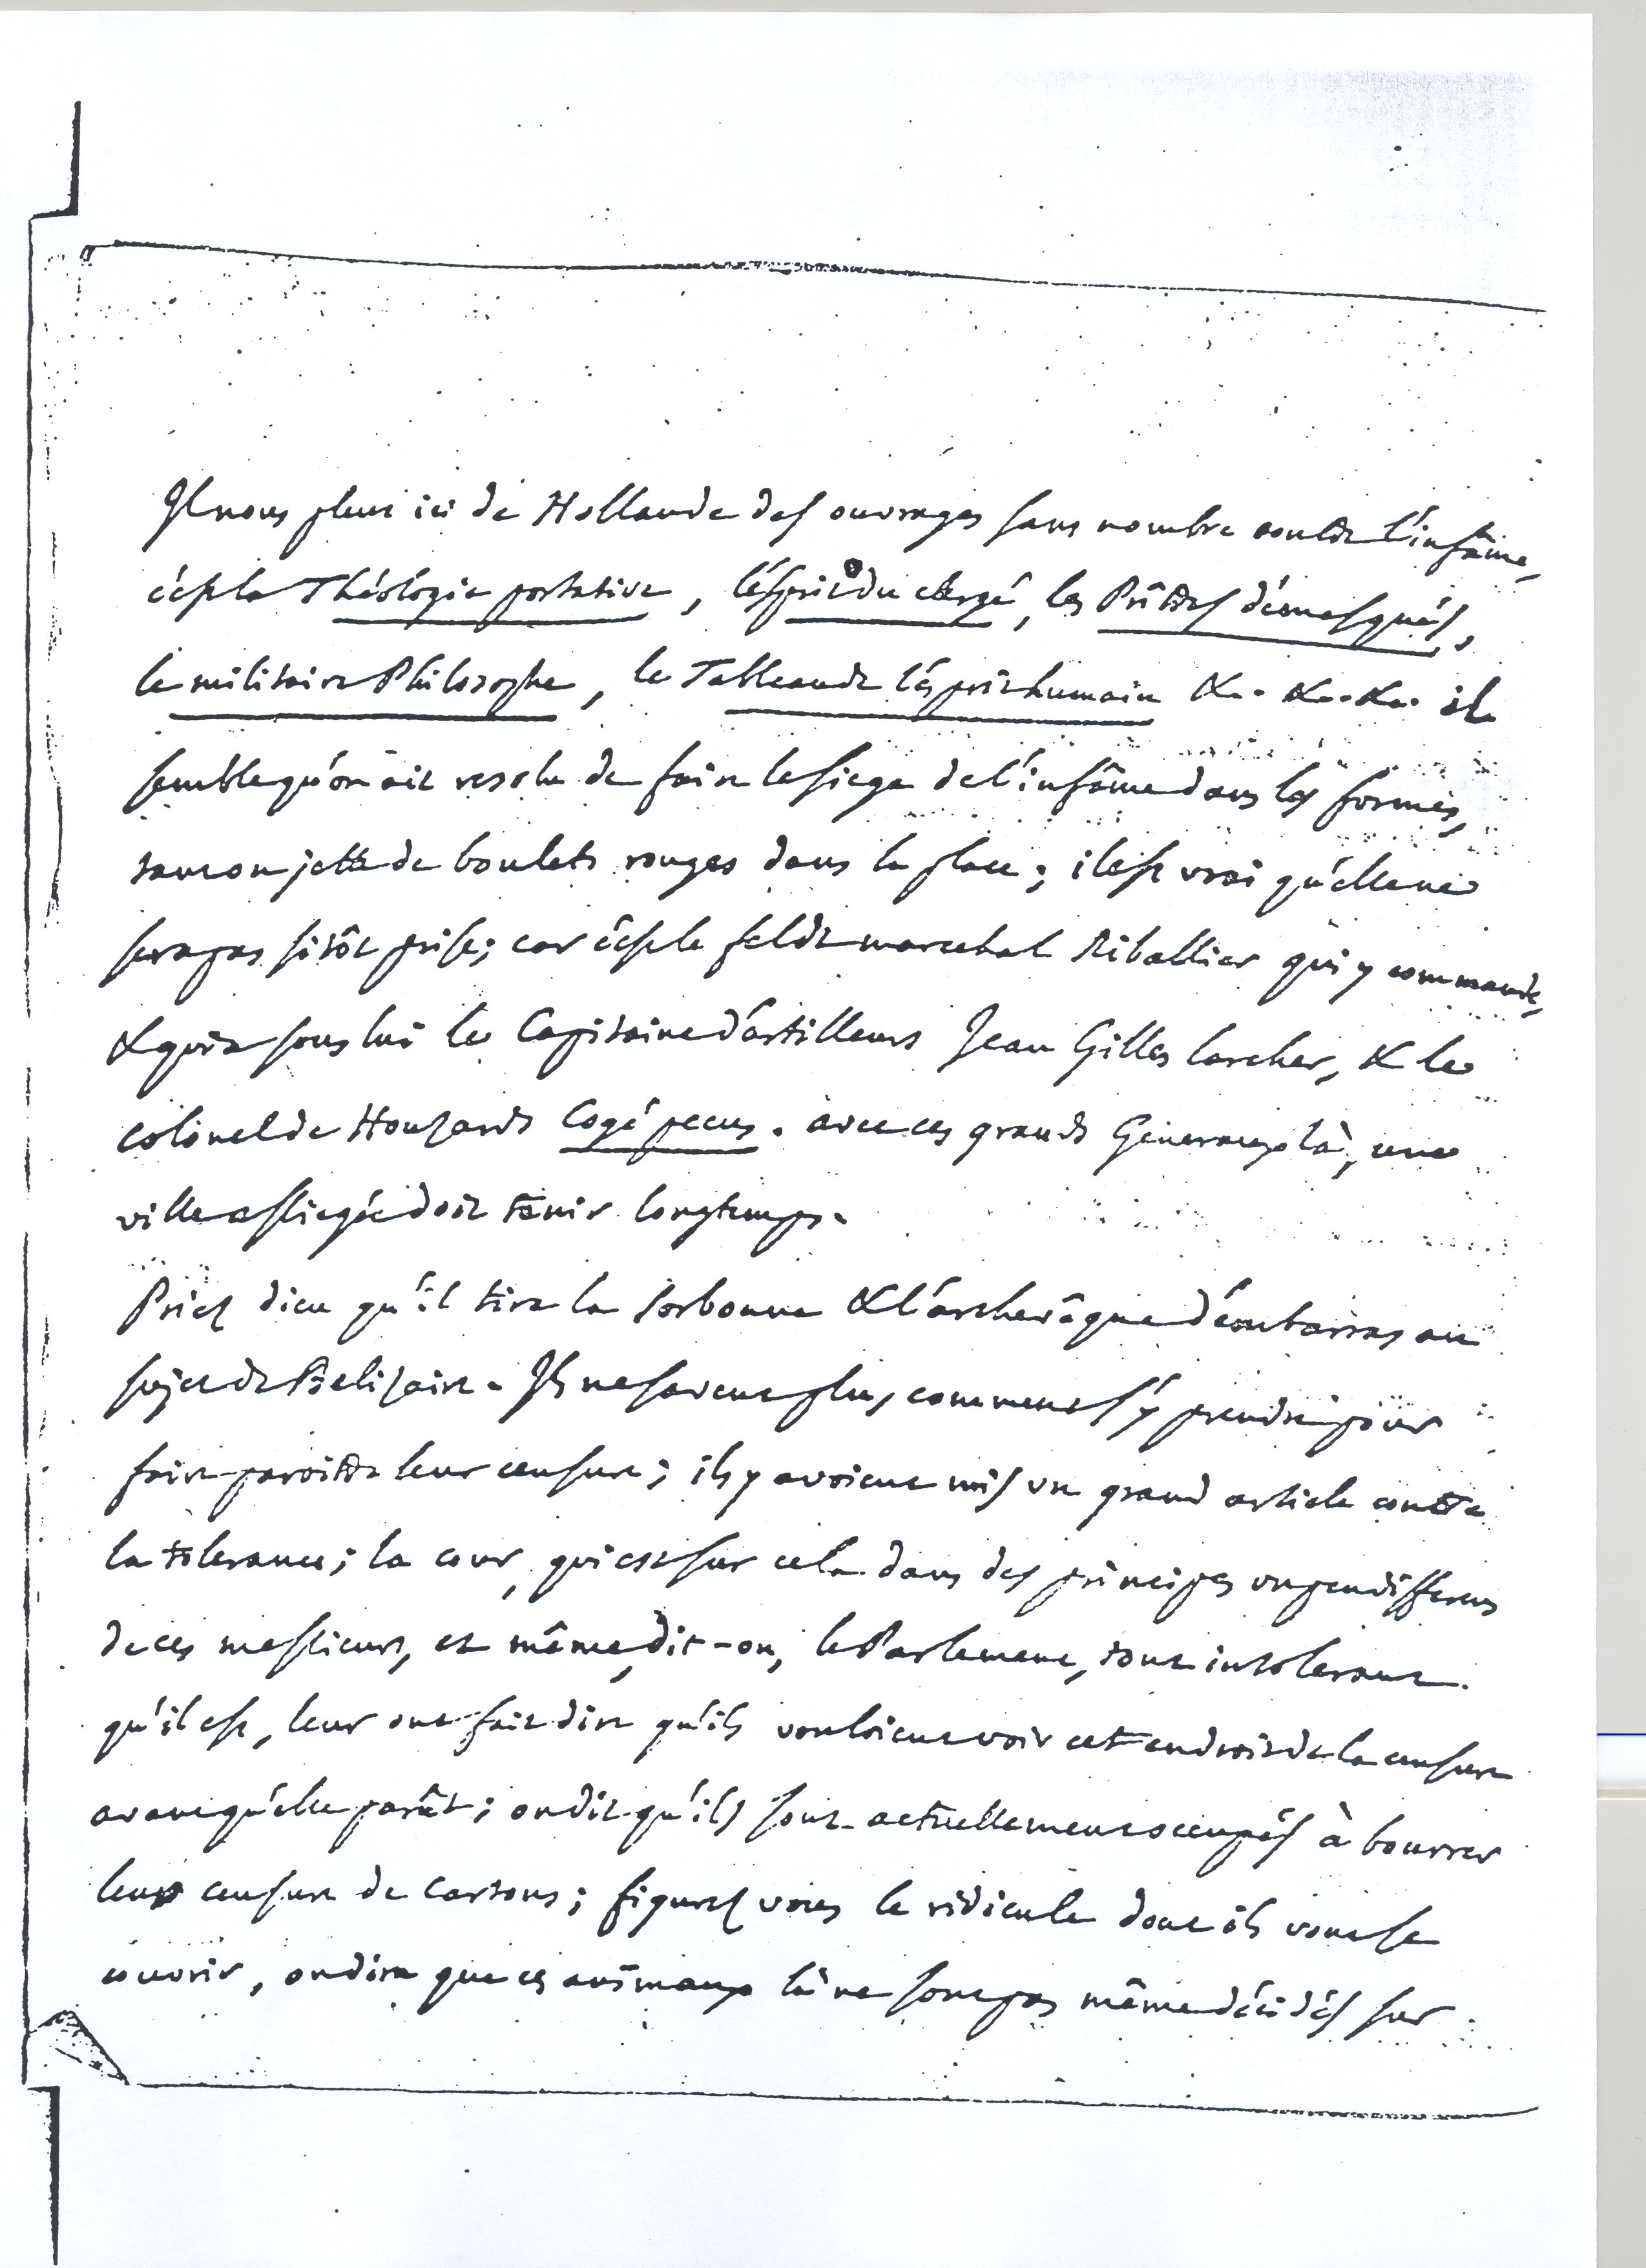 Il nous pleut ici de Hollande des ouvrages sans nombre contre l'infâme,
c'est la Théologie portative, l'ésprit du clergé, les Prêtres démasqués,
le militaire Philosophe, le Tableau de l'ésprit humain &c. &c. &c. il
semble qu'on ait resolu de faire le siege de l'infâme dans les formes,
tant on jette de boulets rouges dans la place; il est vrai qu'elle ne
sera pas sitôt prise; car c'est le feldt marechal Riballier qui y commande,
& qui a sous lui le Capitaine d'artilleurs Jean Gilles Larcher, & le
colonel de Houzards Cogé pecus. avec ces grands Generaux là, une
ville assiegée doit tenir longtemps.
Priez dieu qu'il tire la Sorbonne & l'archevêque d'émbarras au
sujet de Belizaire. Ils ne savent plus comment s'y prendre pour
faire paroitre leur censure; ils y avoient mis un grand article contre
la tolerance; la cour, qui est sur cela dans des principes un peu differens
de ces messieurs, et même, dit-on, le Parlement, tout intolerant
qu'il est, leur ont fait dire qu'ils vouloient voir cet endroit de la censure
avant qu'elle parût; on dit qu'ils sont actuellement occupés à bourrer
leur censure de cartons; figurez vous le ridicule dont ils vont se
couvrir, on dira que ces animaux là ne sont pas même décidés sur